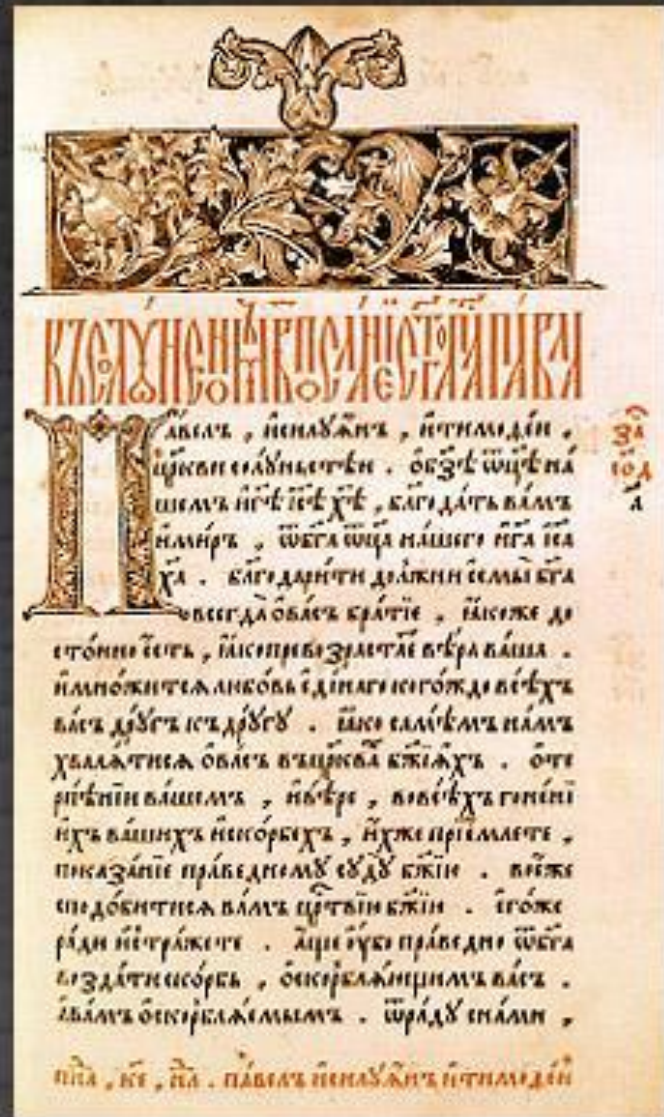 КЪ СОЛꙊНЕѠМЪ В҃ ПОСЛАНІЕ СТ҃ГО АП҃ЛА ПАВЛА
Па́велъ , и҆силꙋа́нъ , и҆тимоѳе́й ,
цр҃кви солꙋ́ньстѣй . ѡ҆бз҃ѣ ѿц҃ѣ на́
шемъ и҆гд҃ѣ і҆с҃ѣ х҃ѣ , бл҃года́ть ва́мъ
и҆ми́ръ , ѿбг҃а ѿц҃а на́шего и҆гд҃а і҆с҃а
х҃а . бл҃годари́ти до́лжни и҆ есмы̀ бг҃а
всегда̀ ѡ҆ва́съ бра́тїе , ꙗ҆коже до
сто́йно є҆сть , ꙗ҆ко превозраста́е вѣ́ра ва́ша .
и҆мно́житсѧ любо́вь є҆ди́наго кого́ждо всѣ́хъ
ва́съ дрꙋ́гъ къ дрꙋ́гꙋ . ꙗ҆ко самѣ́мъ на́мъ
хвали́тисѧ ѡ҆ва́съ въцр҃ква бж҃їѧхъ . ѡ҆те
рпѣ́нїи ва́шемъ , и҆вѣ́ре , вовсѣ́хъ гоне́нї
и҆хъ ва́шихъ и҆ско́рбехъ , и҆́хже прїе́млете ,
показа́нїе пра́ведномꙋ сꙋдꙋ̀ бж҃їю . во є҆́же
сподо́битисѧ ва́мъ цр҃твїю бж҃їю . є҆го́же
ра́ди и҆стра́жете . а҆́ще ᲂу҆̀бо пра́ведно ѿбг҃а
возда́ти ско́рбь , ѡ҆скорблѧ́ющимъ ва́съ .
а҆ва́мъ ѡ҆скорблѧ́емымъ . ѿра́дꙋ сна́ми ,
за
со҃д
а҃
пн҃а , не҃ , на҃ . па́велъ и҆силꙋа́нъ и҆тимоѳе́й